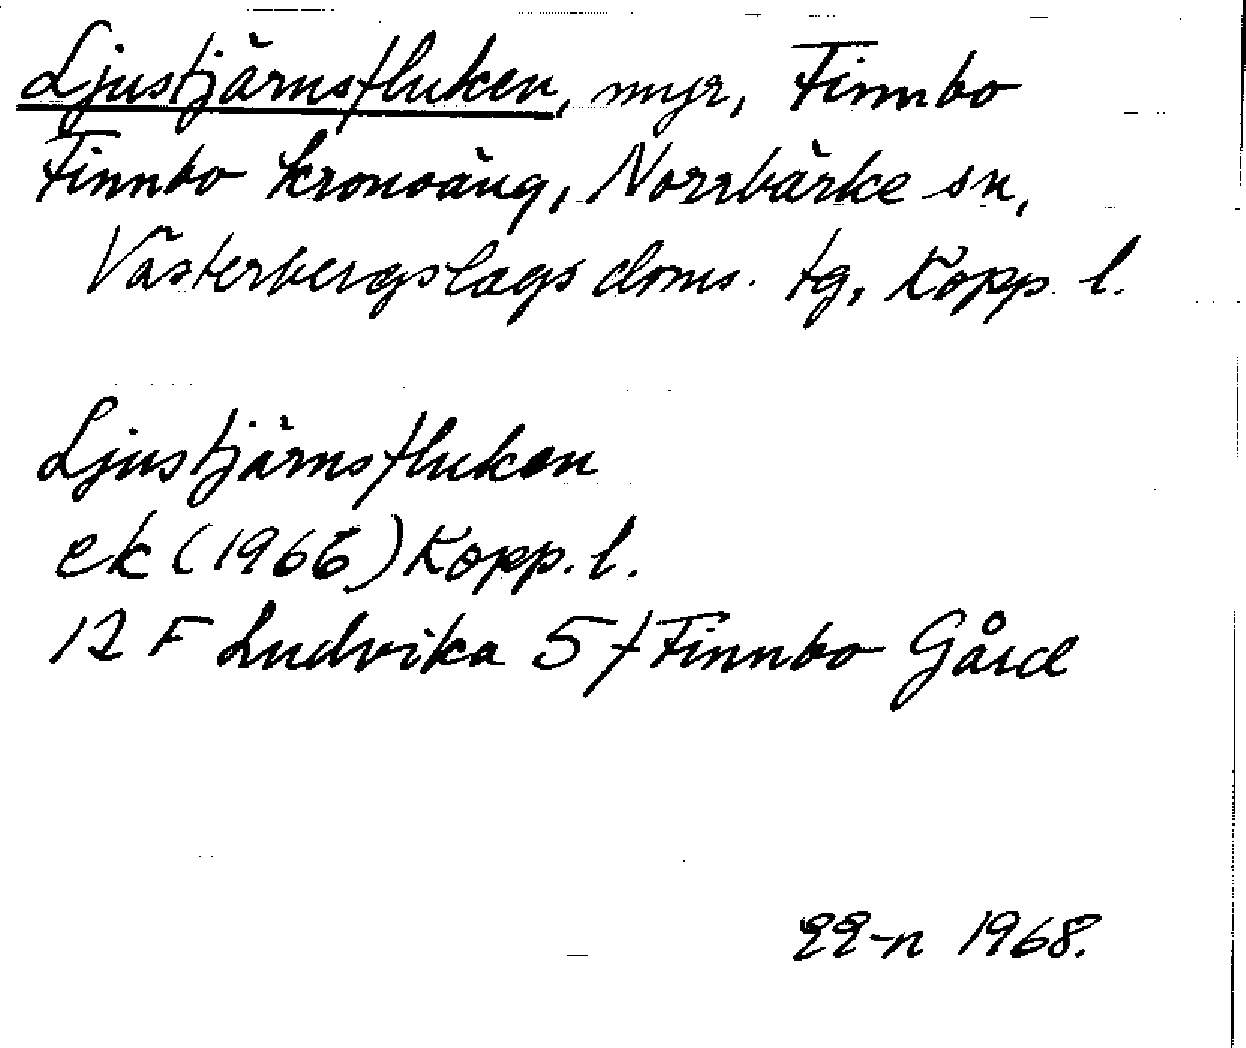 Ljustjärnsfluken, myr, Finnbo
Finnbo kronoäng, Norrbärke sn,
Västerbergslags doms. tg, Kopp. l.
Ljustjärnsfluken
ek (1966) Kopp. l.
12 F Ludvika 5 f Finnbo Gård
1968.